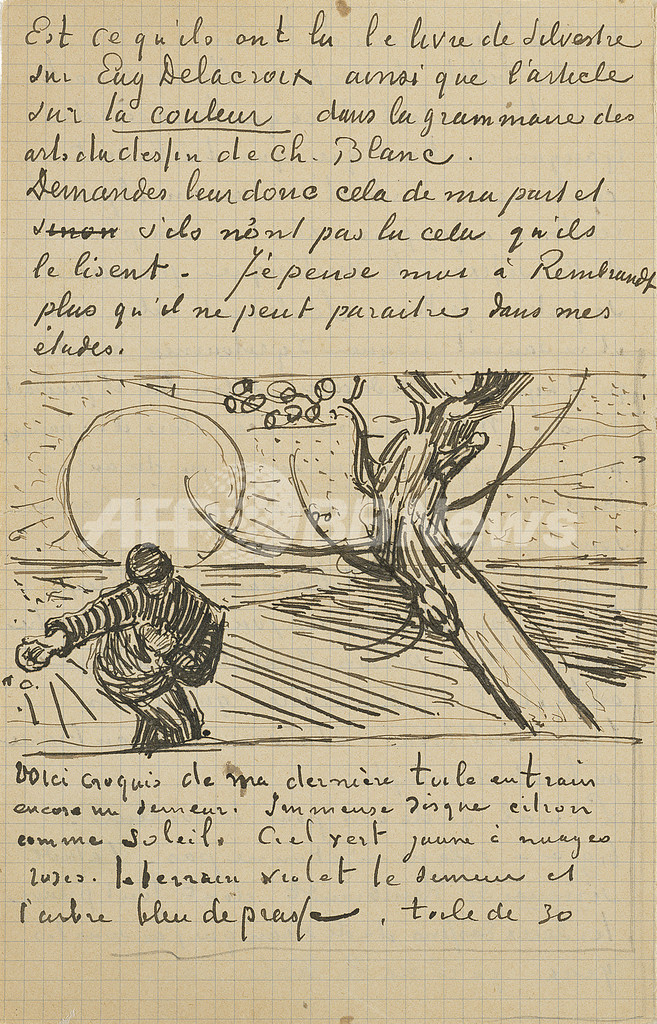 Est ce qu'ils ont lu le livre de Silvestre
sur Eug Delacroix ainsi que l'article
sur la couleur dans la grammaire des
arts du dessin de Ch. Blanc.
Demandes leur donc cela de ma part et
sinon s'ils n'ont pas lu cela qu'ils
le lisent. J'é pense moi à Rembrandt
plus qu'il ne peut paraitre dans mes
études.
AFP BBNews
Voici croquis de ma dernière toile en train
encore un semeur. Immense disque citron
comme soleil. Ciel vert jaune à nuages
roses. le terrain violet le semeur et
l'arbre bleu de prusse. toile de 30